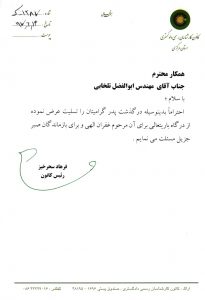 کانون کارشناسان رسمی دادگستری
استان مرکزی
شماره
تاریخ
پیوست
همکار محترم
جناب آقای مهندس ابوالفضل نلخابی
با سلام ؛
احتراماً بدینوسیله درگذشت پدر گرامیتان را تسلیت عرض نموده
از درگاه باریتعالی برای آن مرحوم غفران الهی و برای بازماندگان صبر
جزیل مسئلت می نمایم .
فرهاد سحرخیز
رئیس کانون
اراک : کانون کارشناسان رسمی دادگستری ، صندوق پستی